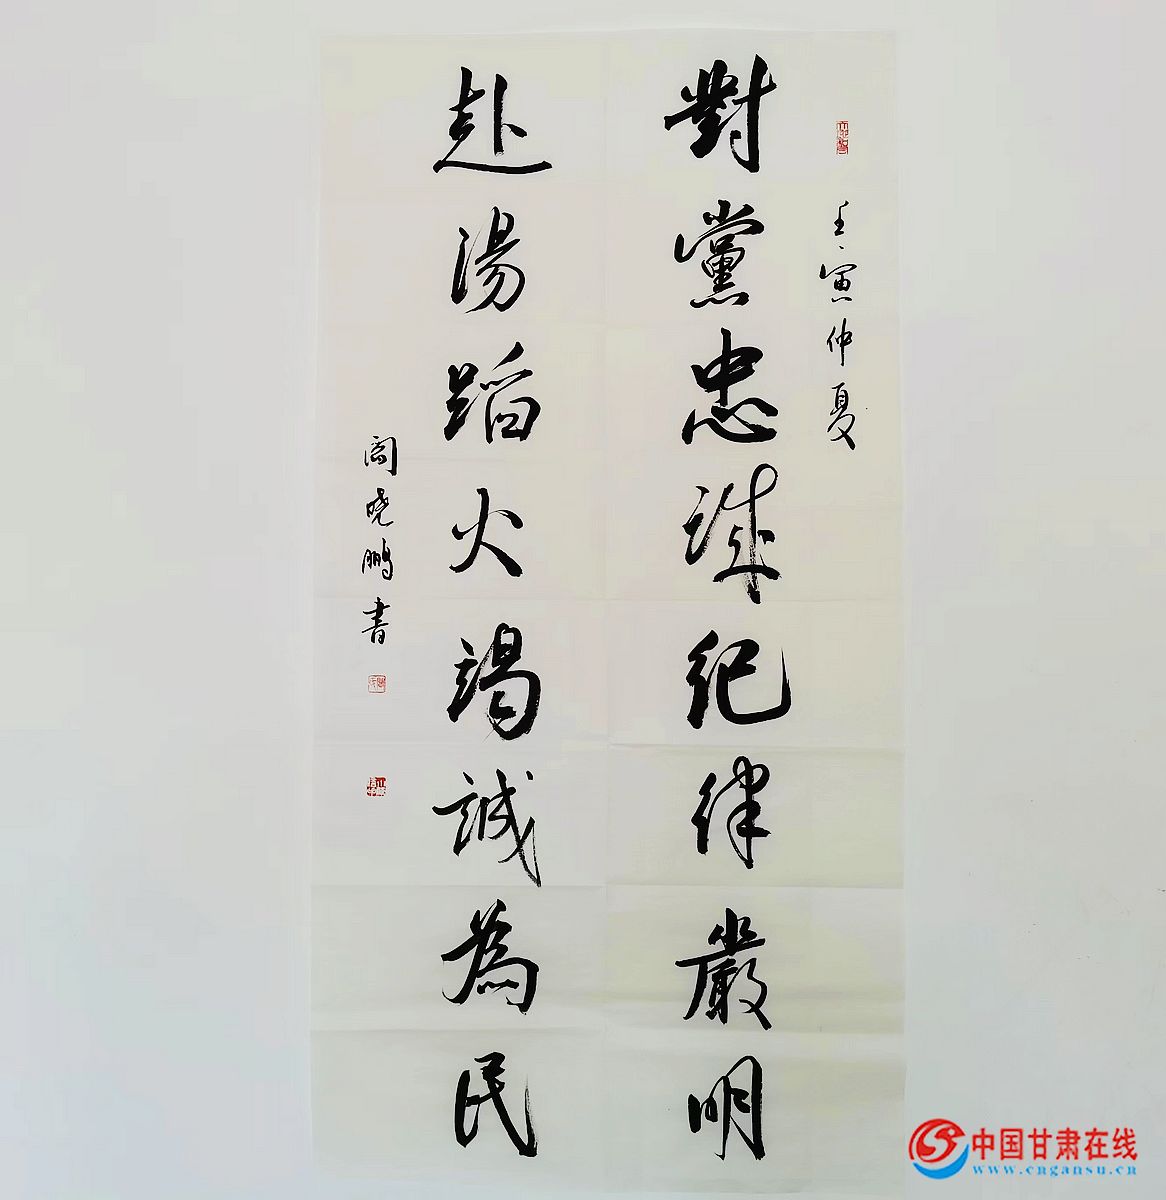 壬寅仲夏
對黨忠誠紀律嚴明
赴湯蹈火竭誠為民
阎晓鹏書
中国甘肃在线
www.cngansu.cn